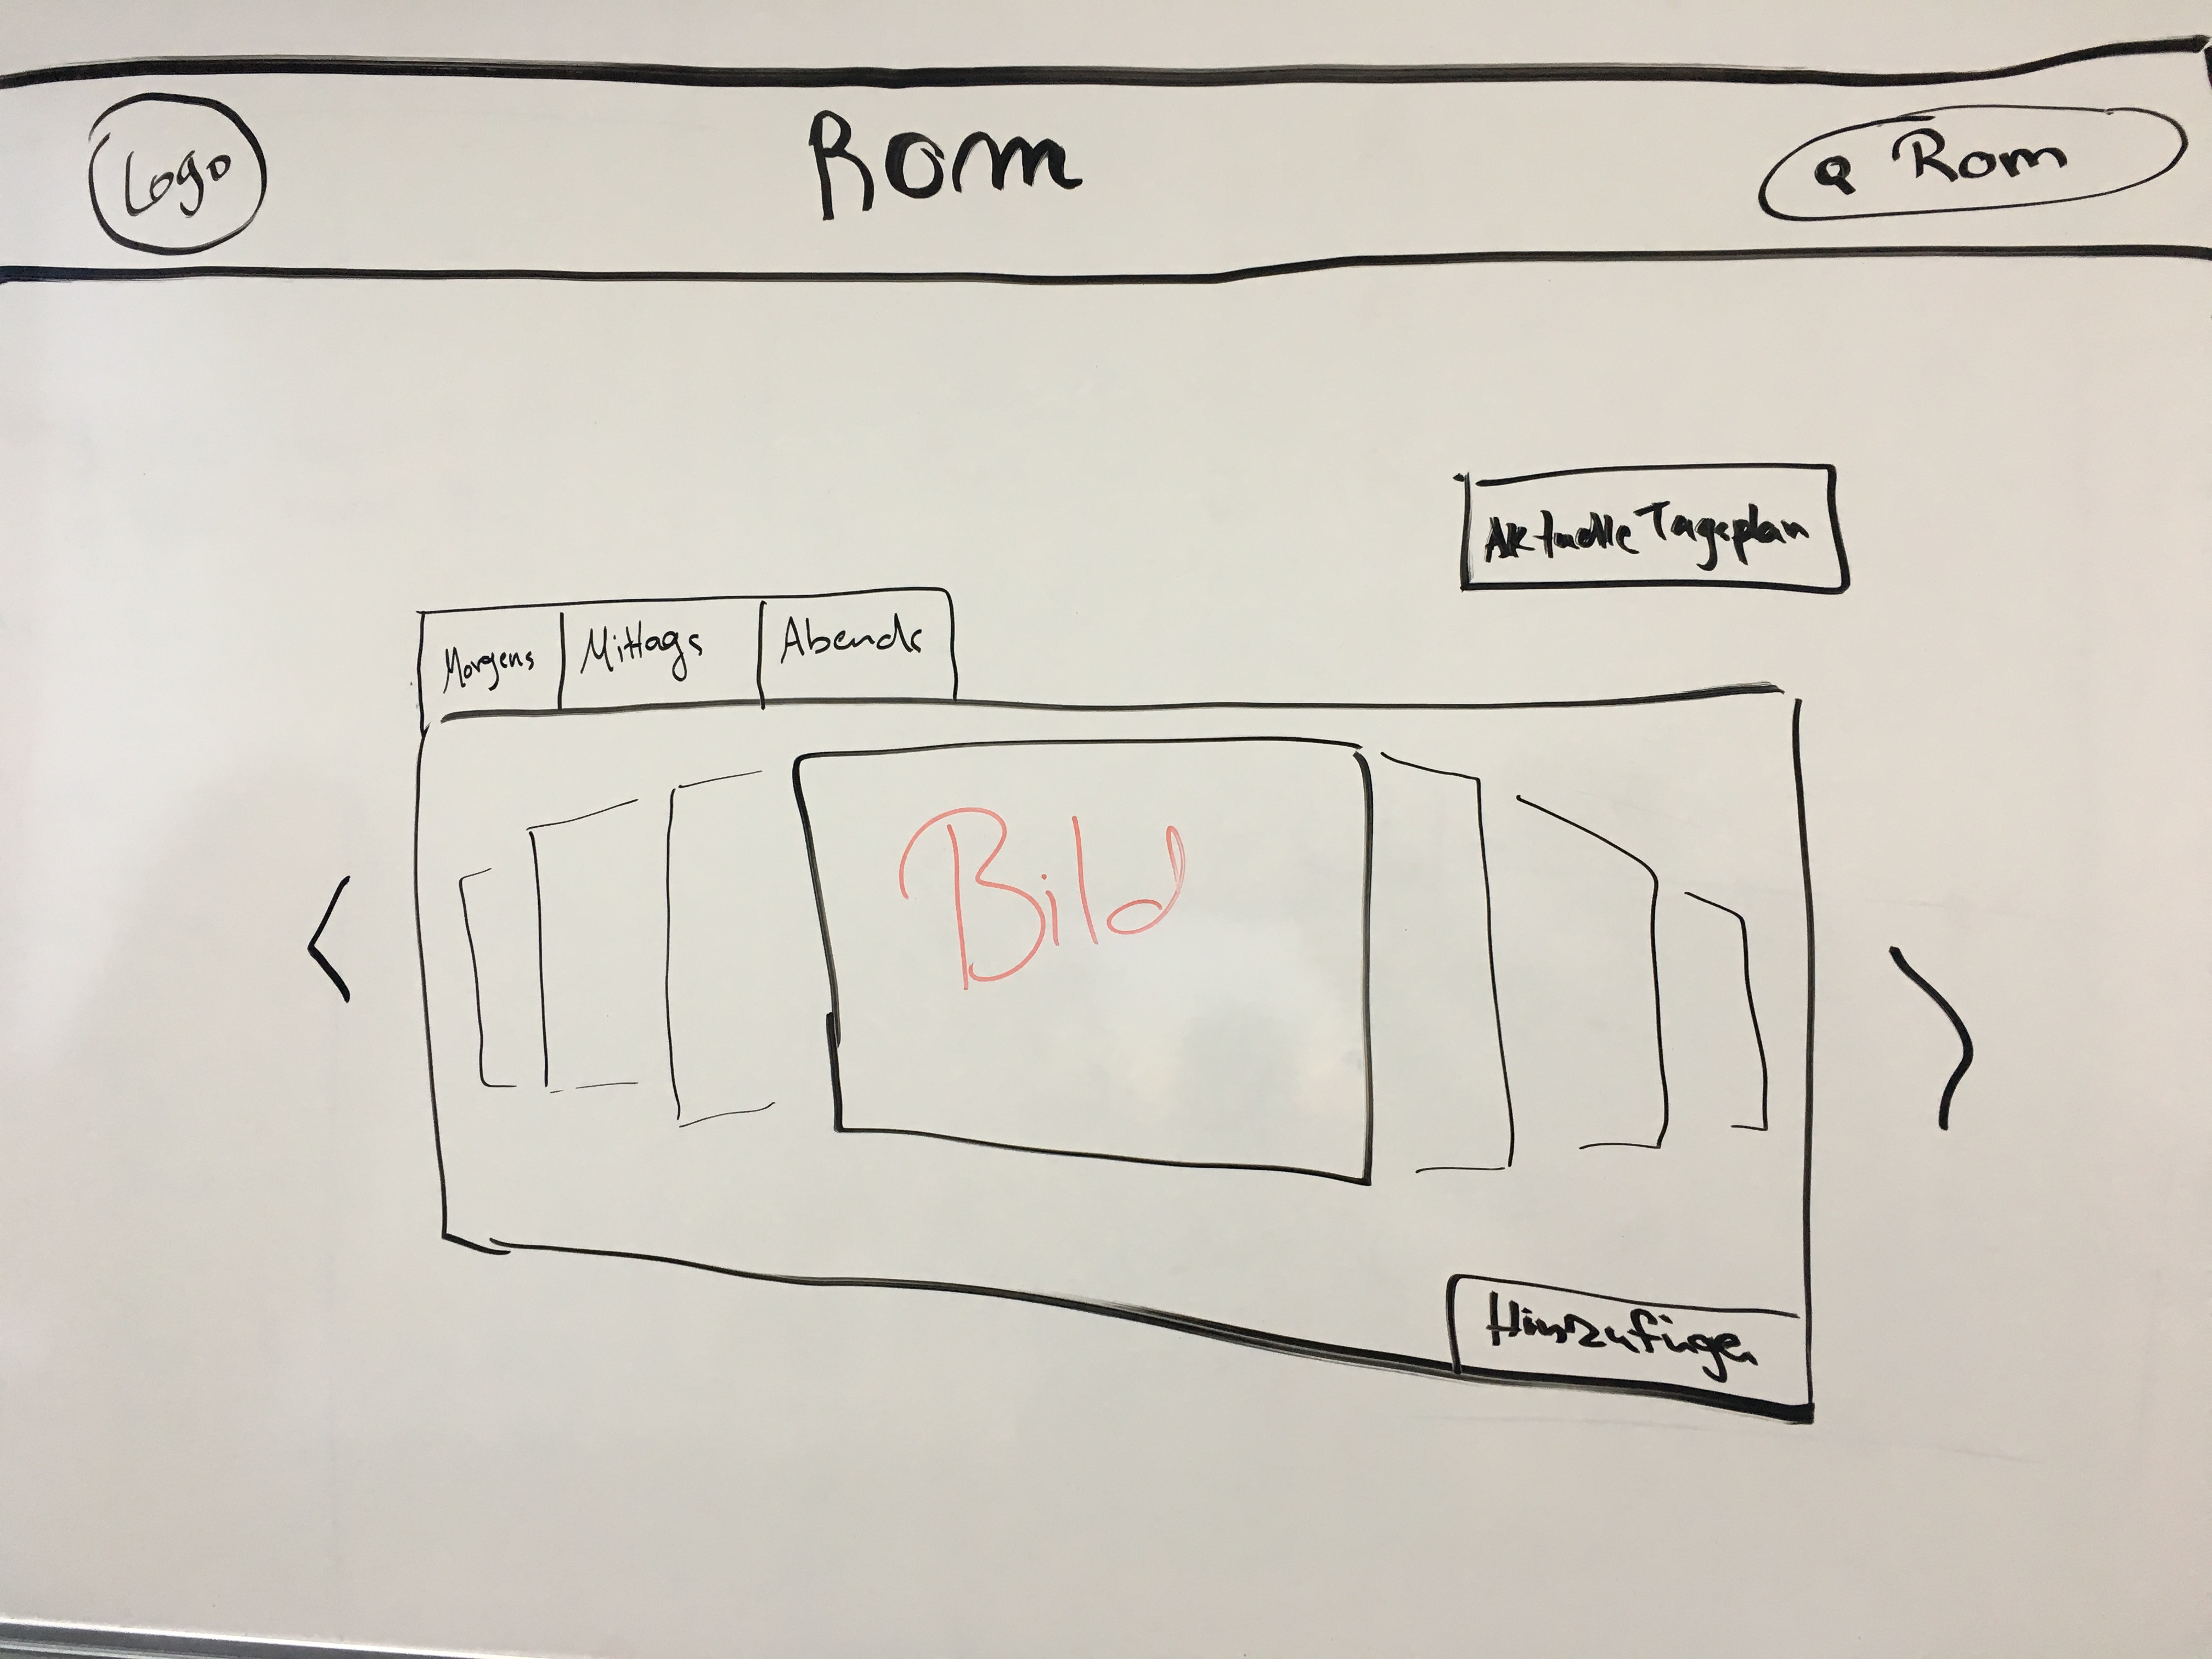 Logo
Rom
Rom
Aktuelle Tagesplan
Morgens
Mittags
Abends
Bild
Hinzufügen